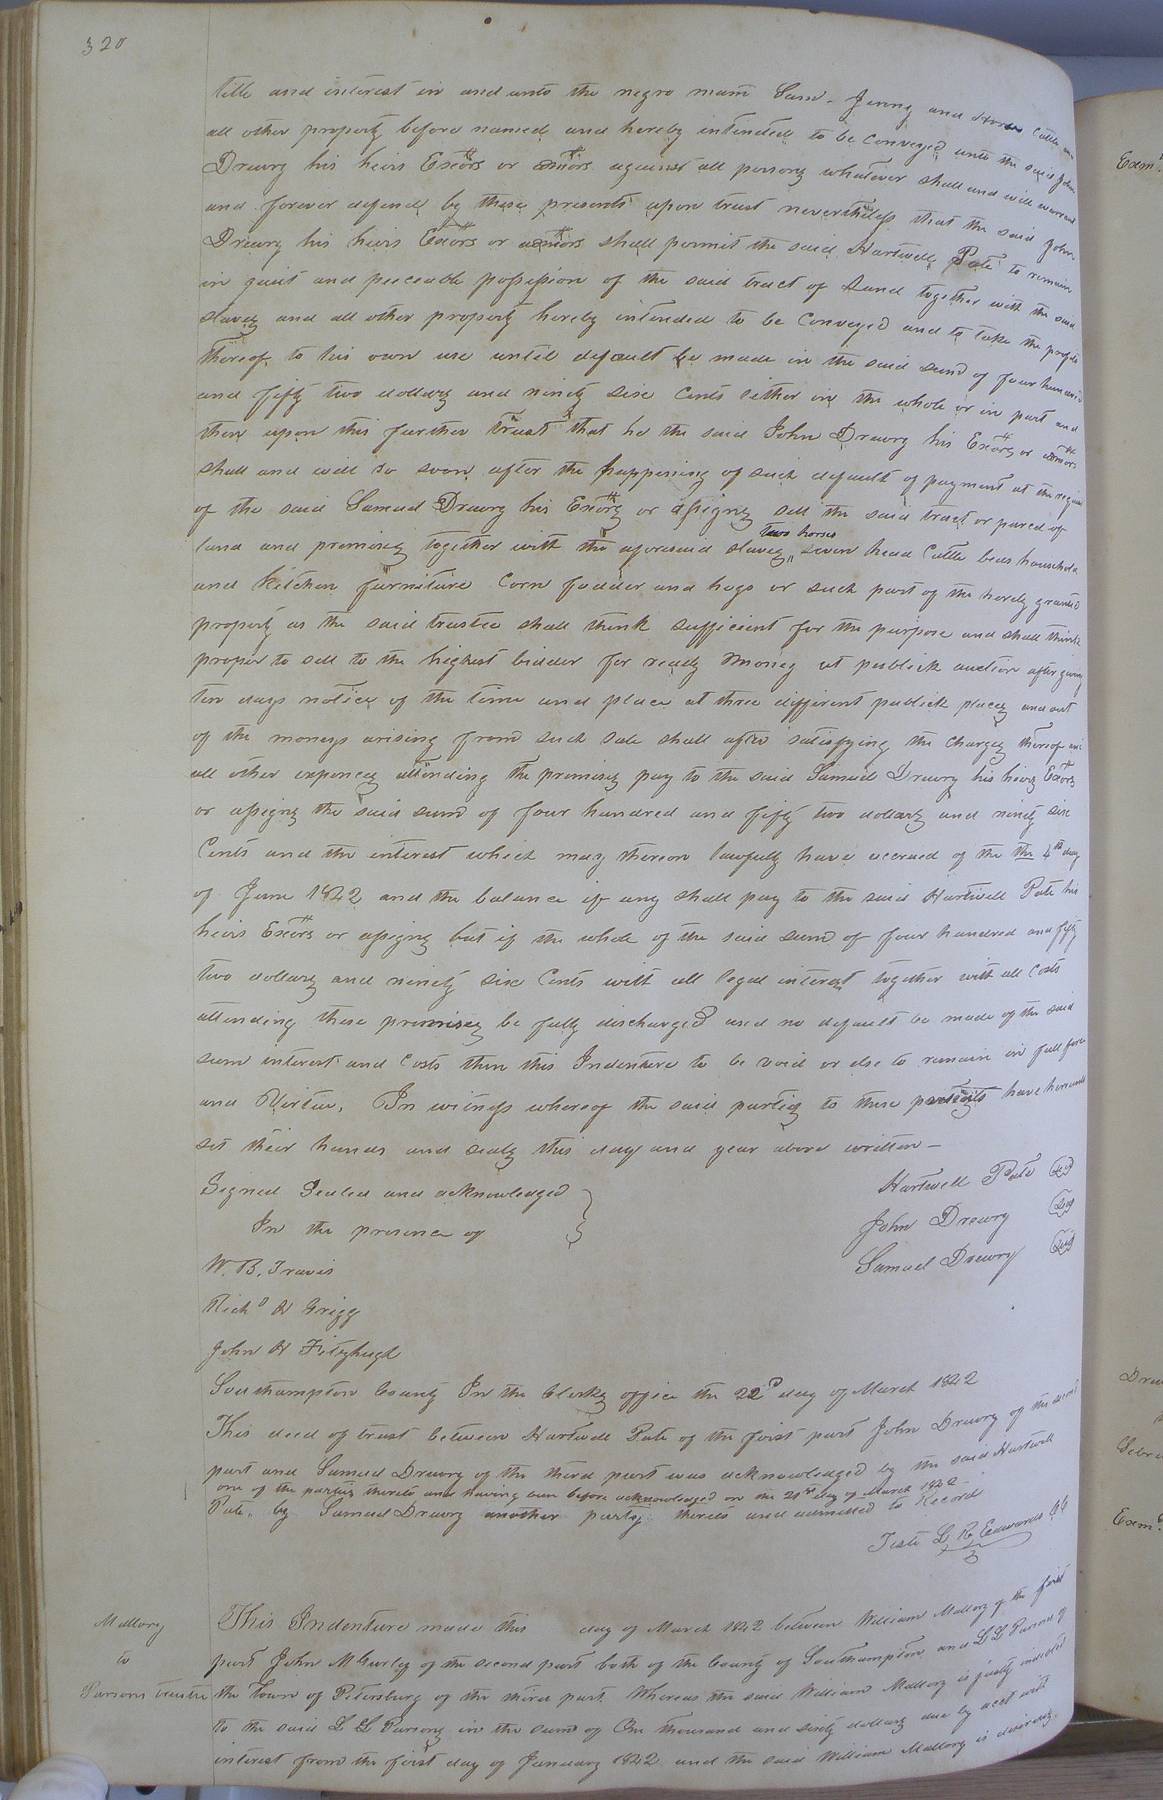 320
title and interest in and unto the negro man Sam - Jenny and Horses Cattle and
all other property before named and hereby intended to be conveyed unto the said John
Drewry his heirs Exōrs or admōrs against all persons whatever shall and will warrant
and forever defend by these presents upon trust nevertheless that the said John
Drewry his heirs Exōrs or admōrs shall permit the said Hartwell Pate to remain
in quiet and peaceable possession of the said tract of Land together with the said
slaves and all other property hereby intended to be Conveyed and to take the profits
thereof to his own use until default be made in the said sum of four hundred
and fifty two dollars and ninety six Cents either in the whole or in part and
then upon this further trust that he the said John Drewry his Exōrs or admōrs
shall and will so soon after the happening of such default of payment at the request
of the said Samuel Drewry his Exōrs or assigns sell the said tract or parcel of
land and premises together with the aforesaid slaves, two horses seven head Cattle beds household
and kitchen furniture Corn fodder and hogs or such part of the hereby granted
property as the said trustee shall think sufficient for the purpose and shall think
proper to sell to the highest bidder for ready money at publick auction after giving
ten days notice of the time and place at three different publick places and out
of the moneys arising from such sale shall after satisfying the charges thereof and
all other expences attending the premises pay to the said Samuel Drewry his heirs Exōrs
or assigns the said sum of four hundred and fifty two dollars and ninety six
Cents and the interest which may thereon lawfully have accrued of the the 4th day
of June 1842 and the balance if any shall pay to the said Hartwell Pate his
heirs Exōrs or assigns but if the whole of the said sum of four hundred and fifty
two dollars and ninety six Cents with all legal interest together with all costs
attending these premises be fully discharged and no default be made of the said
sum interest and Costs then this Indenture to be void or else to remain in full force
and Virtue. In witness whereof the said parties to these presents have hereunto
set their hands and seals this day and year above written -
Signed Sealed and acknowledged
In the presence of
Hartwell Pate
John Drewry
Samuel Drewry
W. B. Travis
Richd H Grigg
John H Fitzhugh
Southampton County In the Clerks office the 22d day of March 1842
This deed of trust between Hartwell Pate of the first part John Drewry of the second
part and Samuel Drewry of the third part was acknowledged by the said Hartwell
one of the parties thereto and having been before acknowledged on the 21st day of March 1842
Pate, by Samuel Drewry another party thereto and admitted to Record
Teste L R Edwards
Mallory
to
Parsons trustee
This Indenture made this day of March 1842 between William Mallory of the first
part John M Gurley of the second part both of the County of Southampton and L L Parsons of
the Town of Petersburg of the third part. Whereas the said William Mallory is justly indebted
to the said L L Parsons in the sum of One thousand and sixty dollars due by acct with
interest from the first day of January 1842 and the said William Mallory is desirous
Exm.